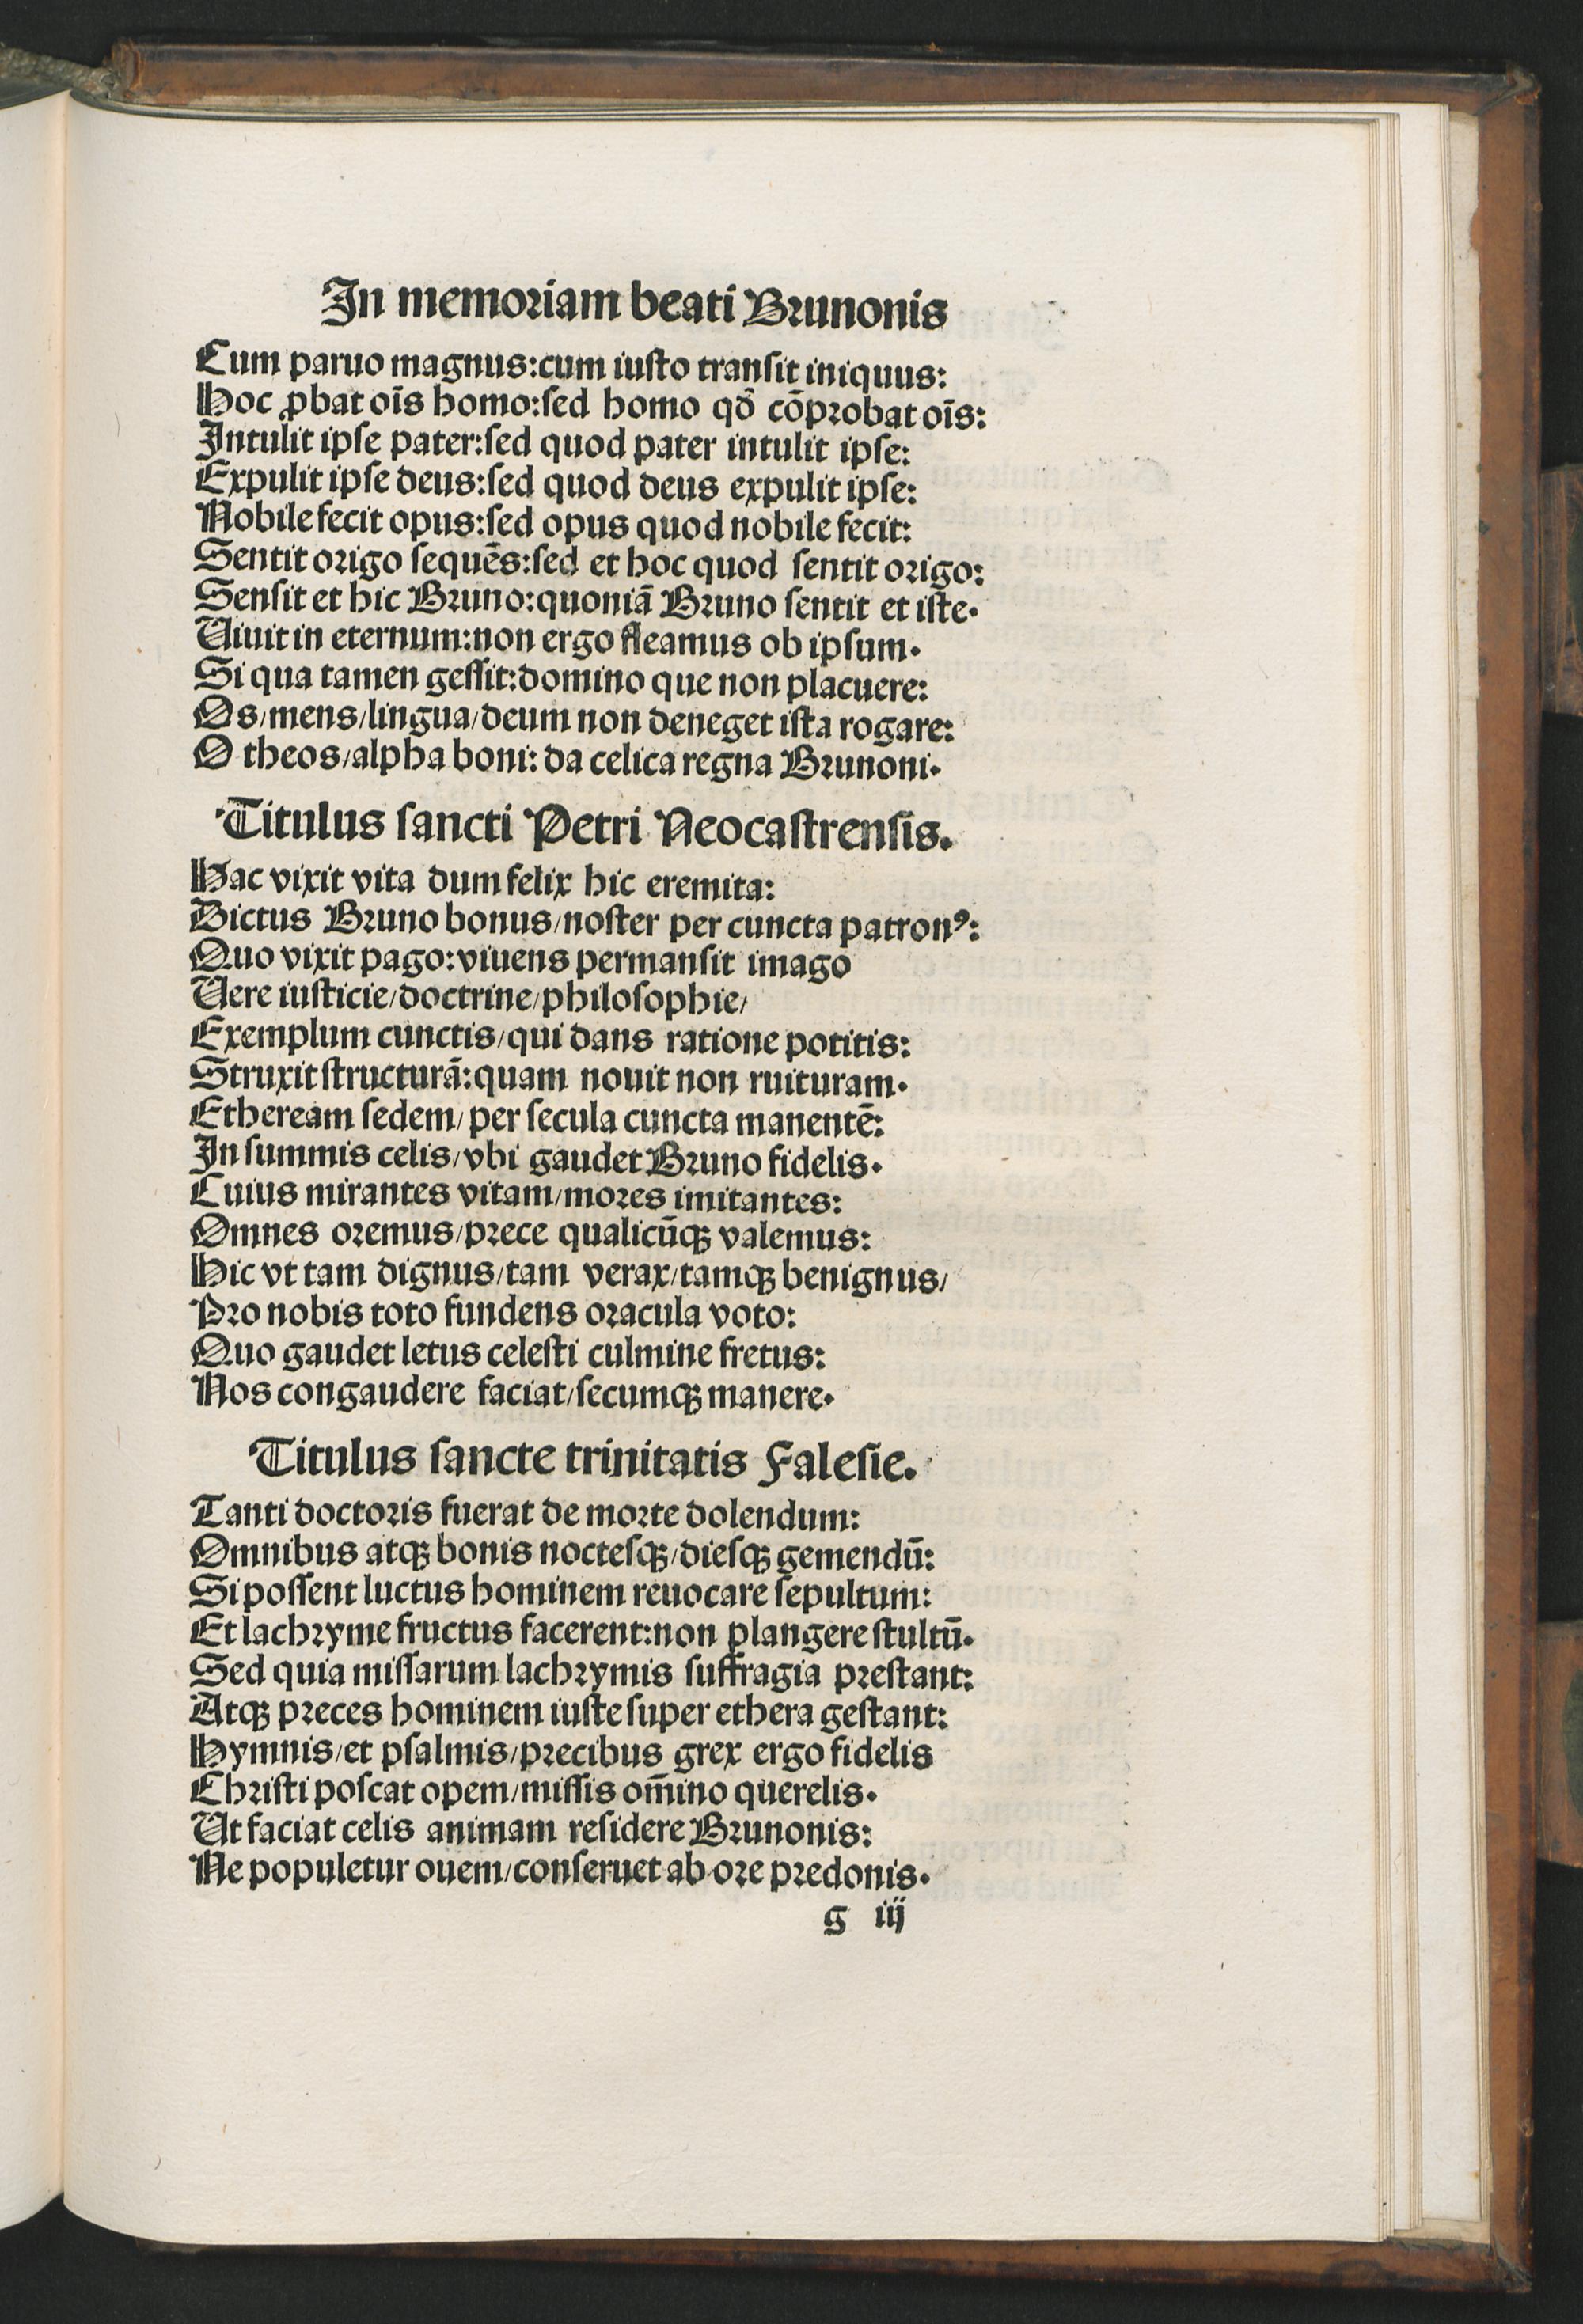 In memoriam beati Brunonis
Cum paruo magnus:cum iusto transit iniquus:
Hoc ꝓbat oīs homo:sed homo qđ cōprobat oīs:
Intulit ipse pater:sed quod pater intulit ipse:
Expulit ipse deus:sed quod deus expulit ipse:
Nobile fecit opus:sed opus quod nobile fecit:
Sentit origo sequēs:sed et hoc quod sentit origo:
Sensit et hic Bruno:quoniā Bruno sentit et iste.
Uiuit in eternum:non ergo fleamus ob ipsum.
Si qua tamen gessit:domino que non placuere:
Os/mens/lingua/deum non deneget ista rogare:
O theos/alpha boni: da celica regna Brunoni.
Titulus sancti Petri Neocastrensis.
Hac vixit vita dum felix hic eremita:
Dictus Bruno bonus/noster per cuncta patronꝰ:
Quo vixit pago:viuens permansit imago
Uere iusticie/doctrine/philosophie/
Exemplum cunctis/qui dans ratione potitis:
Struxit structurā:quam nouit non ruituram.
Etheream sedem/per secula cuncta manentē:
In summis celis/vbi gaudet Bruno fidelis.
Cuius mirantes vitam/mores imitantes:
Omnes oremus/prece qualicūqꝫ valemus:
Hic vt tam dignus/tam verax/tamqꝫ benignus/
Pro nobis toto fundens oracula voto:
Quo gaudet letus celesti culmine fretus:
Nos congaudere faciat/secumqꝫ manere.
Titulus sancte trinitatis Falesie.
Tanti doctoris fuerat de morte dolendum:
Omnibus atqꝫ bonis noctesqꝫ/diesqꝫ gemendū:
Si possent luctus hominem reuocare sepultum:
Et lachryme fructus facerent:non plangere stultū.
Sed quia missarum lachrymis suffragia prestant:
Atqꝫ preces hominem iuste super ethera gestant:
Hymnis/et psalmis/precibus grex ergo fidelis
Christi poscat opem/missis om̄ino querelis.
Ut faciat celis animam residere Brunonis:
Ne populetur ouem/conseruet ab ore predonis.
g iij